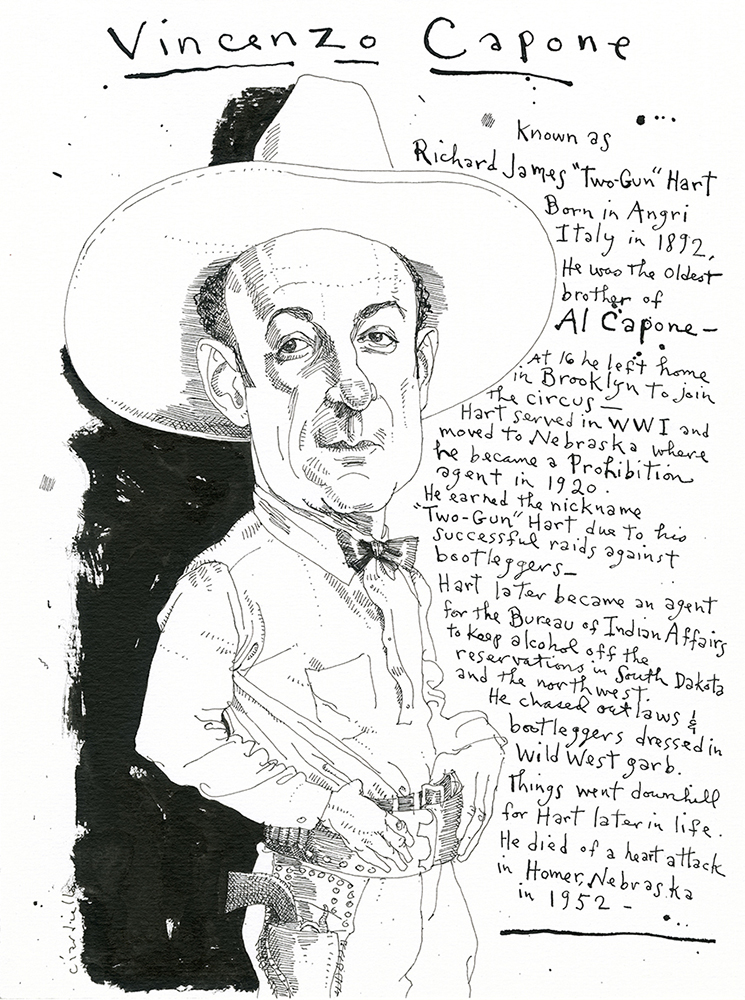 Vincenzo Capone
Known as
Richard James "Two-Gun" Hart
Born in Angri
Italy in 1892,
He was the oldest
brother of
Al Capone—
At 16 he left home
in Brooklyn to join
the circus—
Hart served in WWI and
moved to Nebraska where
he became a Prohibition
agent in 1920.
He earned the nickname
"Two-Gun" Hart due to his
successful raids against
bootleggers—
Hart later became an agent
for the Bureau of Indian Affairs
to keep alcohol off the
reservations in South Dakota
and the northwest.
He chased outlaws &
bootleggers dressed in
Wild West garb.
Things went downhill
for Hart later in life.
He died of a heart attack
in Homer, Nebraska
in 1952—